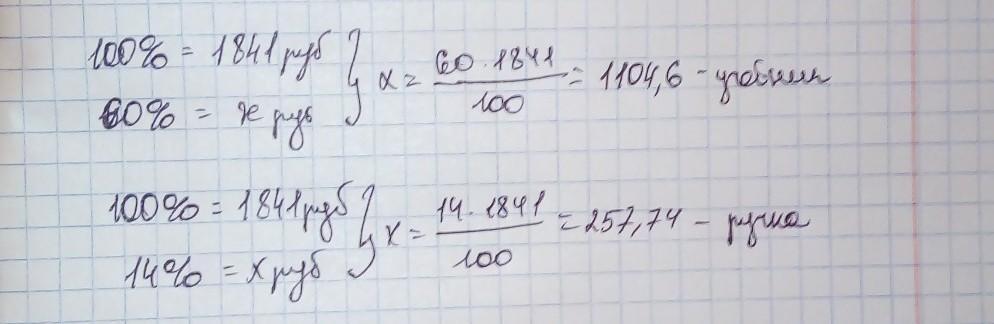 100% = 1841 руб
60% = x руб
x = 60 · 1841 / 100 = 1104,6 - учебник
100% = 1841 руб
14% = x руб
x = 14 · 1841 / 100 = 257,74 - ручка